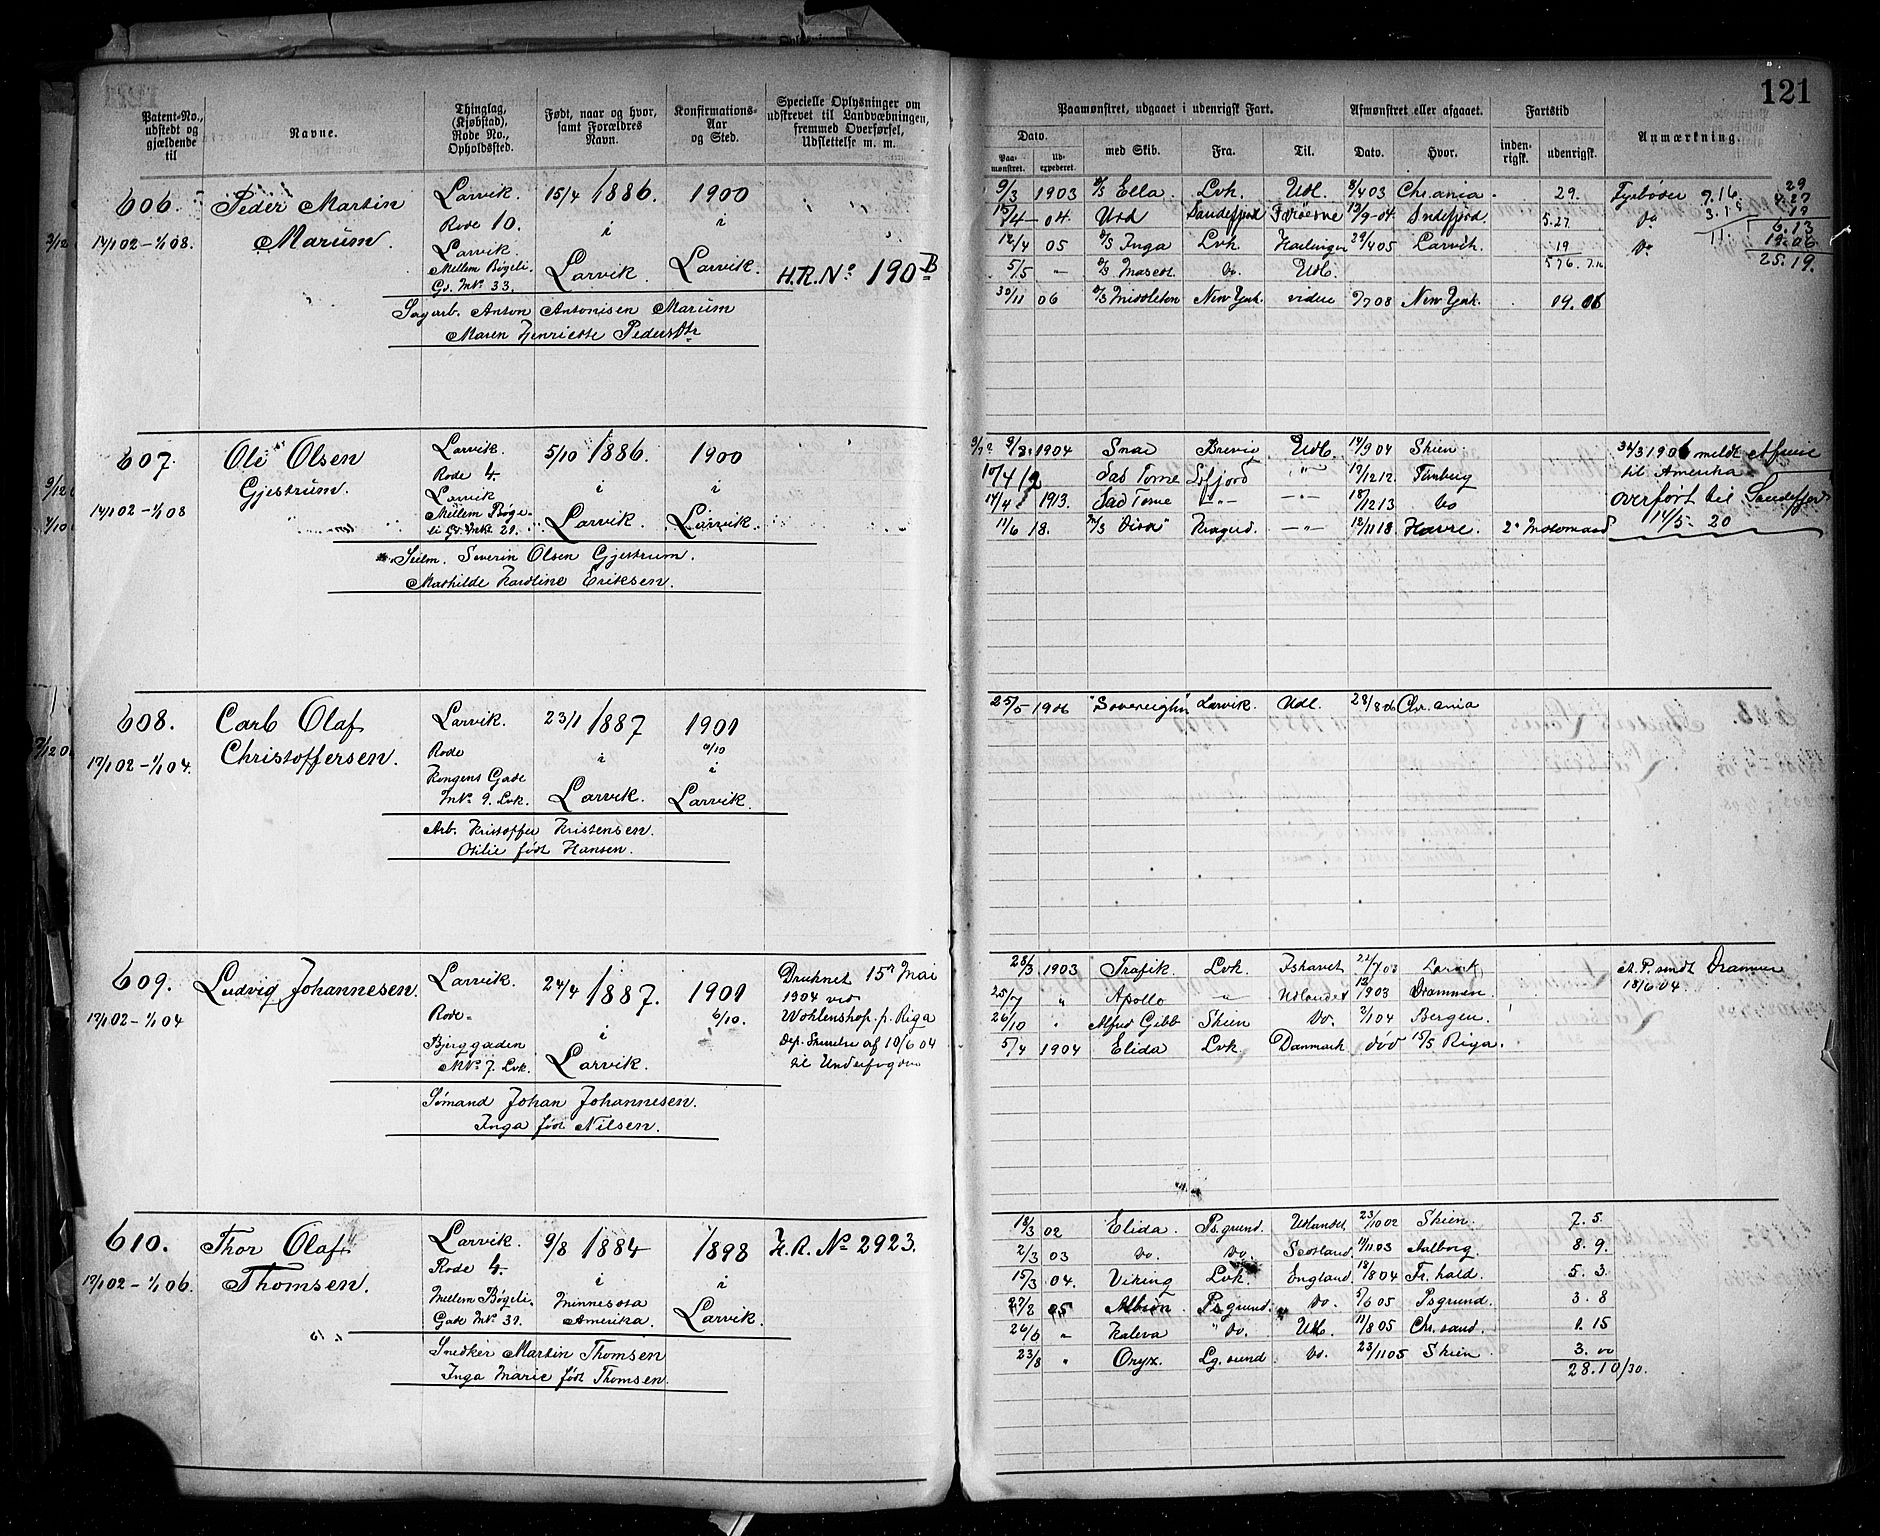 121
Patent-No., udstedt og gjældende til
Navne.
Thinglag, (Kjøbstad), Rode No., Opholdssted.
Født, naar og hvor, samt Forældres Navn.
Konfirmations-Aar og Sted.
Specielle Oplysninger om udskrevet til Landvæbningen, fremmed Overførsel, Udslettelse m. m.
Paamønstret, udgaaet i udenrigsk Fart.
Dato.
Paa-mønstret.
Ud-expederet.
med Skib.
Fra.
Til.
Afmønstret eller afgaaet.
Dato.
Hvor.
Fartstid
inden-rigsk.
udenrigsk.
Anmærkning.
606. Peder Martin Marum
17/1 02 - 1/1 08.
Larvik.
Rode 10.
Larvik
Mellem Bøgeli
Gd. No. 33.
15/4 1886.
i
Larvik.
1900
i
Larvik.
H.R. No 190 B
Sagarb. Anton Antonisen Marum
Maren Henriette Pedersdtr
9/3 1903 D/S Ella Lvk. Udl. 8/4 03 Chr.ania 29. Fyrbøder
04. Urd Sandefjord 13/9-04. Sndefjord 5.27 Do
12/4 05 D/S Inga Lvk. 29/4 05 Larvik. 19 Do
5/5 " D/S Mascot Do Udl.
30/11 06 D/S Middleton New York. videre 08 New York.
9.16
29
6.13
19.06
25.19.
607. Ole Olsen Gjestrum.
17/1 02 - 1/1 08
Larvik.
Rode 4.
Larvik
Mellem Bøge-
li Gd. No 29.
5/10 1886.
i
Larvik.
1900
i
Larvik.
Seilm. Severin Olsen Gjestrum.
Mathilde Karoline Eriksen.
1904 Snar Brevik Udl. 14/9 04 Skien. 1906 meldt Afreise
til Amerika
12/12 12 Tønsberg overført til Sandefjord
1913. 18/12 13 Do 14/5-20
11/6 18. Kragerø. 12/11 18 Havre. 2' Motormand
608. Carl Olaf Christoffersen.
17/1 02 - 1/1 04.
Larvik.
Rode
Kongens Gade
No. 9. Lvk.
23/1 1887
i
Larvik.
1901
6/10
i
Larvik.
Arb. Kristoffer Kristensen.
Otilie født Hansen.
25/5 1906 "Sovereighn" Larvik. Udl. 28/8 06 Chr.ania
609. Ludvig Johannesen.
17/1 02 - 1/1 04
Larvik.
Rode.
Bjerggaden
No. 7. Lvk.
24/4 1887.
i
Larvik.
1901
6/10.
Druknet 15de Mai
1904 ved
p. Riga
Dep. Skrivelse af 10/6 04
til Underfogden
Sømand Johan Johannesen.
Inga født Nilsen.
23/3 1903 Trafik. Lvk. Ishavet 22/7 03 Larvik A.P. sendt Drammen
18/6 04
25/7 " Apollo " Udlandet 903 Drammen.
26/10 " Alfred Gibb Skien Do. 2/1 04 Bergen.
5/4 1904 Elida Lvk. Danmark død 15/5 Riga.
610. Thor Olaf Thomsen.
17/1 02 - 1/1 06.
Larvik.
Rode 4.
Mellem Bøgeli
Gade No. 39.
9/8 1884
i
Minnesota
Amerika.
1898
i
Larvik.
H.R. No 2923.
Snedker Martin Thomsen
Inga Marie født Thomsen.
15/3 02 Elida. Psgrund. Udlandet 23/10 02 Skien. 7.5.
2/3 03 Do. Do. Scotland. 11/11 03 Aalborg. 8.9.
15/3 04. Viking Lvk. England. 18/8 04 Fr.hald. 5.3.
05 Albion. Psgrund. Do. 5/6 05 Psgrund. 3.8
26/6 " Kaleva " Do. Udl. 11/8 05 Chr.sand. 1.15
23/8 " Onyx. Lg.sund Do. 23/11 05 Skien. 3.00
28.10/30.